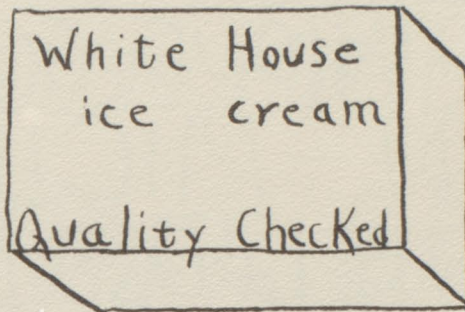 White House
ice cream
Quality Checked